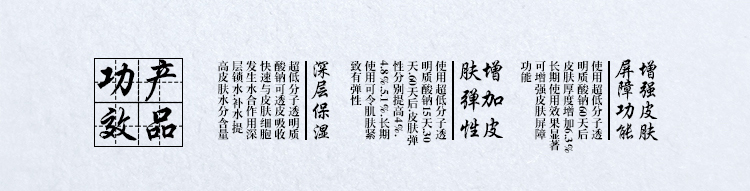 产品
功效
增强皮肤
屏障功能
使用超低分子透
明质酸钠60天后
皮肤厚度增加6.3%
长期使用效果显著
可增强皮肤屏障
功能
增加皮
肤弹性
使用超低分子透
明质酸钠15天、30
天、60天后皮肤弹
性分别提高4%、
4.8%、5.1%，长期
使用可令肌肤紧
致有弹性
深层保湿
超低分子透明质
酸钠可透皮吸收
快速与皮肤细胞
发生水合作用深
层锁水、补水、提
高皮肤水分含量